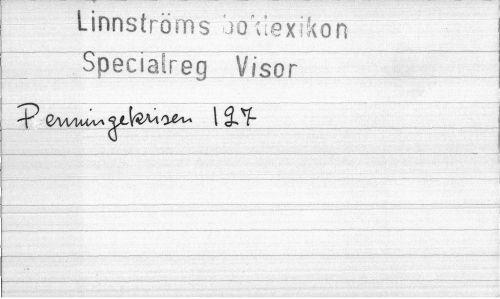 Linnströms boklexikon
Specialreg Visor
Penningekrisen 127